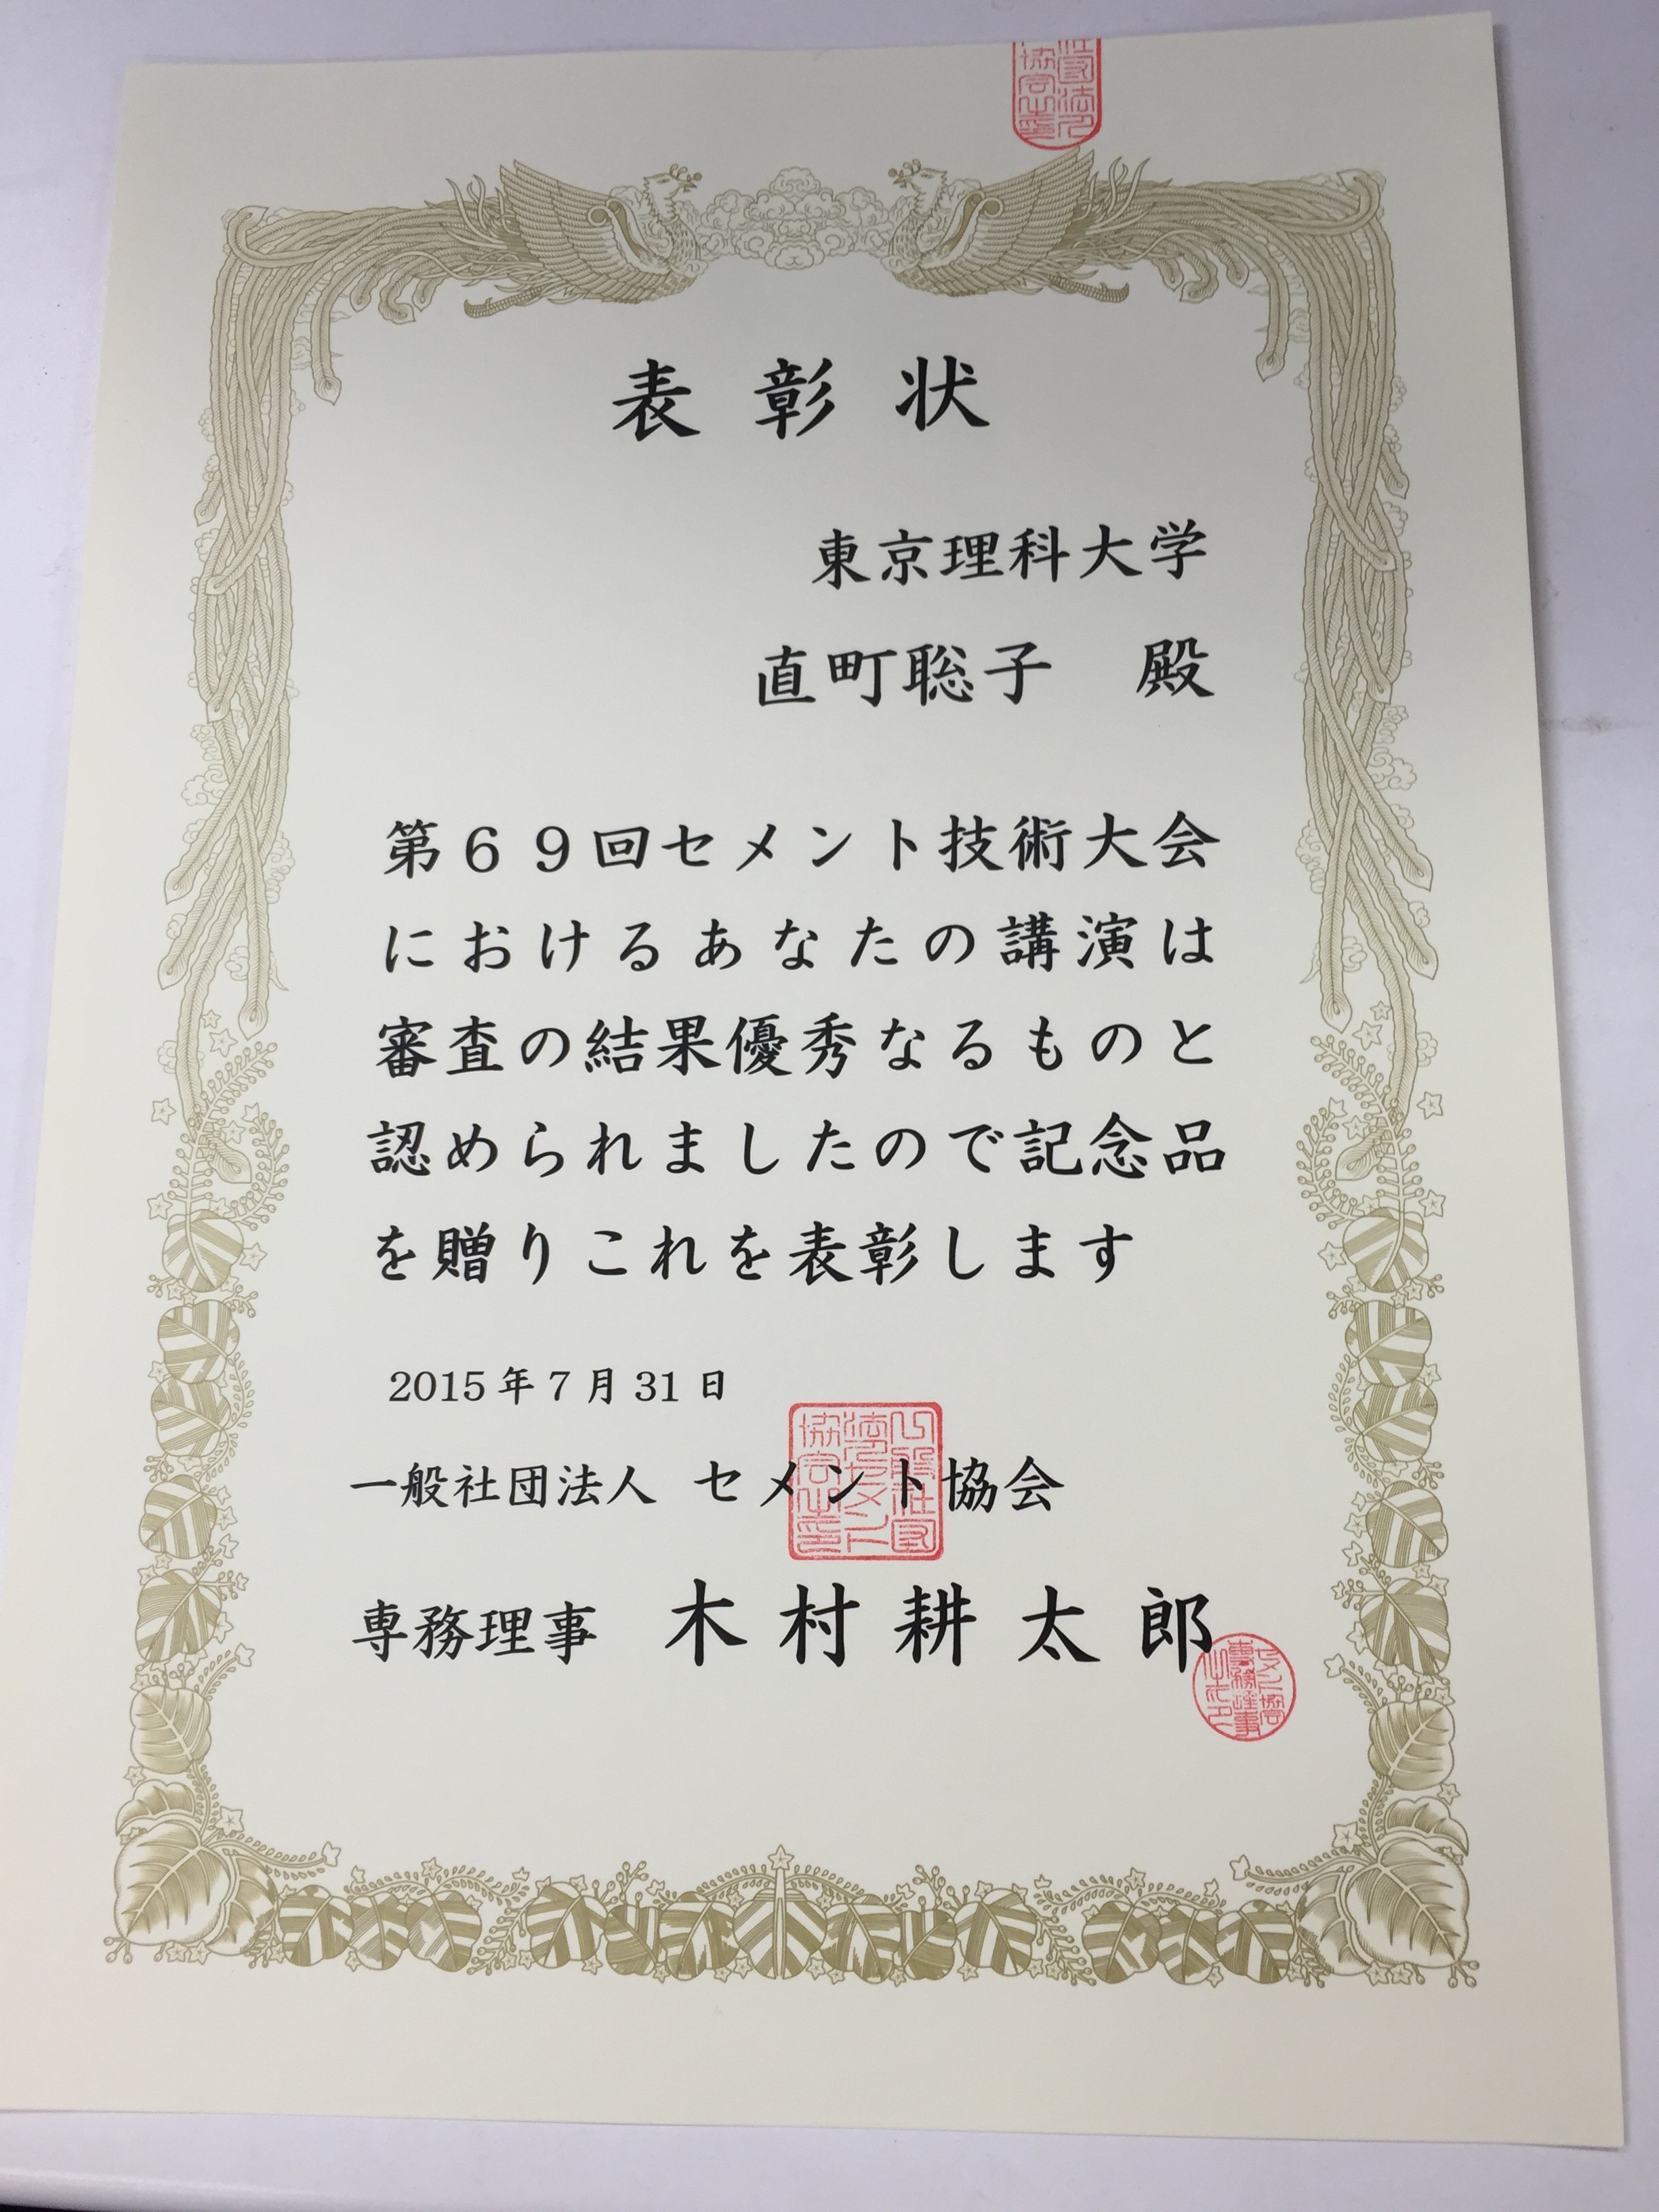 表彰状
東京理科大学
直町聡子 殿
第69回セメント技術大会
におけるあなたの講演は
審査の結果優秀なるものと
認められましたので記念品
を贈りこれを表彰します
2015年7月31日
一般社団法人 セメント協会
専務理事 木村耕太郎